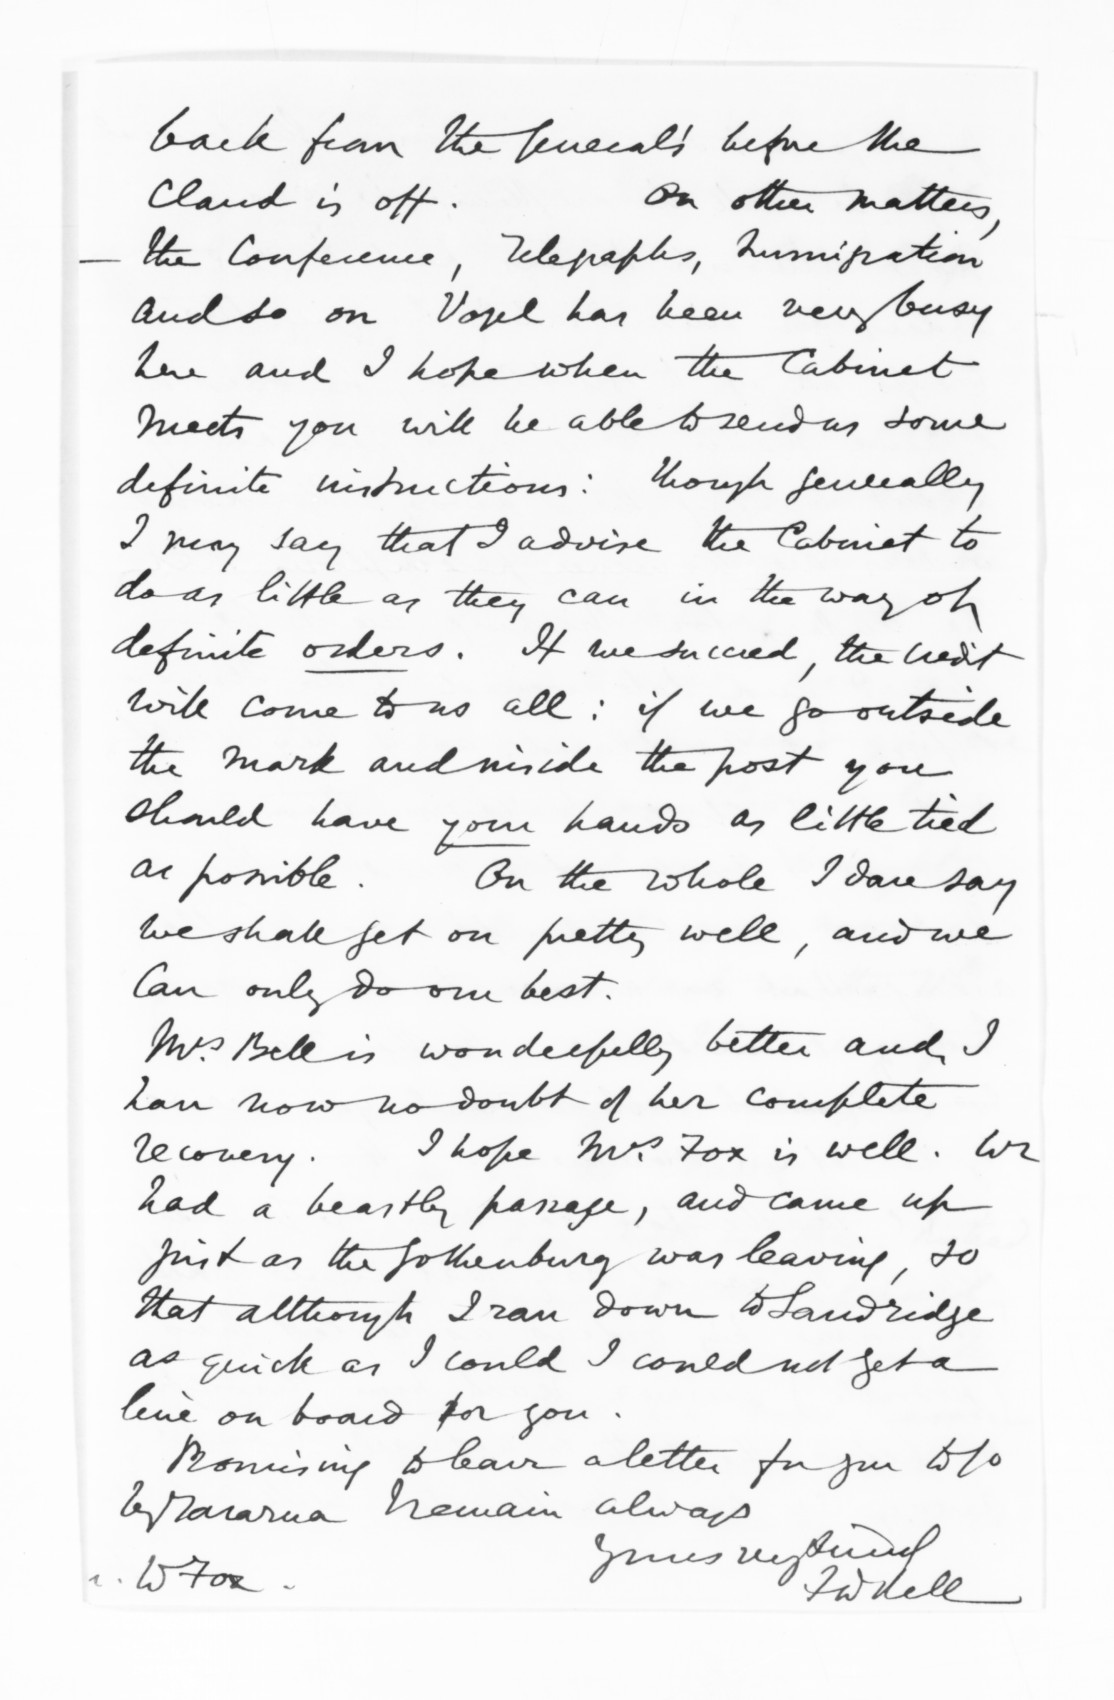 back from the General's before the
Claud is off. On other matters,
— the Conference, Telegraphs, Immigration
and so on Vogel has been very busy
here and I hope when the Cabinet
meets you will be able to send us some
definite instructions: though generally
I may say that I advise the Cabinet to
do as little as they can in the way of
definite orders. If we succeed, the credit
will come to us all: if we go outside
the mark and inside the post you
should have your hands as little tied
as possible. On the whole I dare say
we shall get on pretty well, and we
can only do our best.
Mrs. Bell is wonderfully better and, I
have now no doubt of her complete
recovery. I hope Mrs. Fox is well. We
had a beastly passage, and came up
just as the Gothenburg was leaving, so
that although I ran down to Sandridge
as quick as I could I could not get a
line on board for you.
Promising to leave a letter for you to go
by Tararua I remain always
Yours very
W Fox. FD Bell